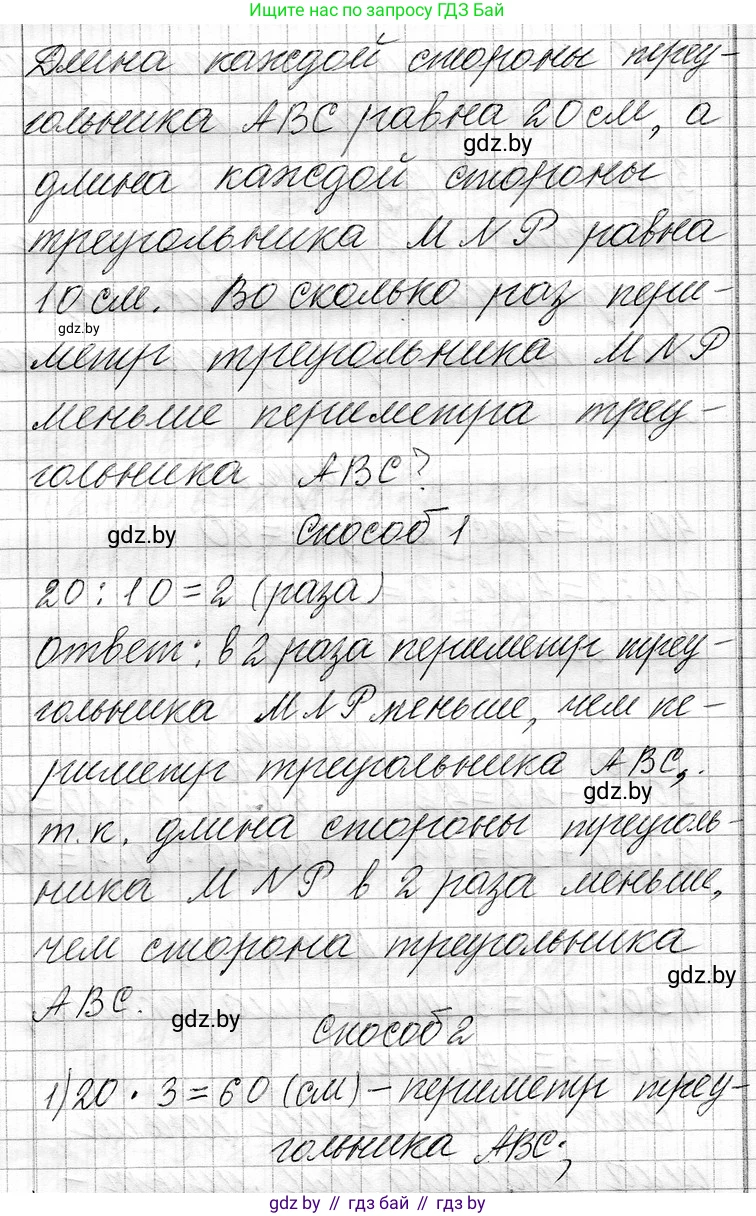 Ищите нас по запросу ГДЗ Бай
Длина каждой стороны треу-
гольника ABC равна 20 см, а
gdz.by
длина каждой стороны
треугольника MNP равна
10 см. Во сколько раз пери-
gdz.by
метр треугольника MNP
меньше периметра треу-
гольника ABC?
gdz.by Способ 1
20 : 10 = 2 (раза)
Ответ: в 2 раза периметр треу-
гольника MNP меньше, чем пе-
риметр треугольника ABC,.
gdz.by
т.к. длина стороны треуголь-
ника MNP в 2 раза меньше,
чем сторона треугольника
gdz.by
ABC.
gdz.by Способ 2
1) 20 · 3 = 60 (см) – периметр треу-
гольника ABC;
gdz.by // гдз бай // гдз by